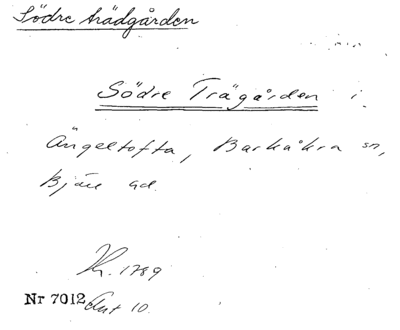 Södre trädgården
Södre Trägården i
Ängeltofta, Barkåkra sn,
Bjäre hd.
Kt. 1789
Nr 7012 Akt 10.